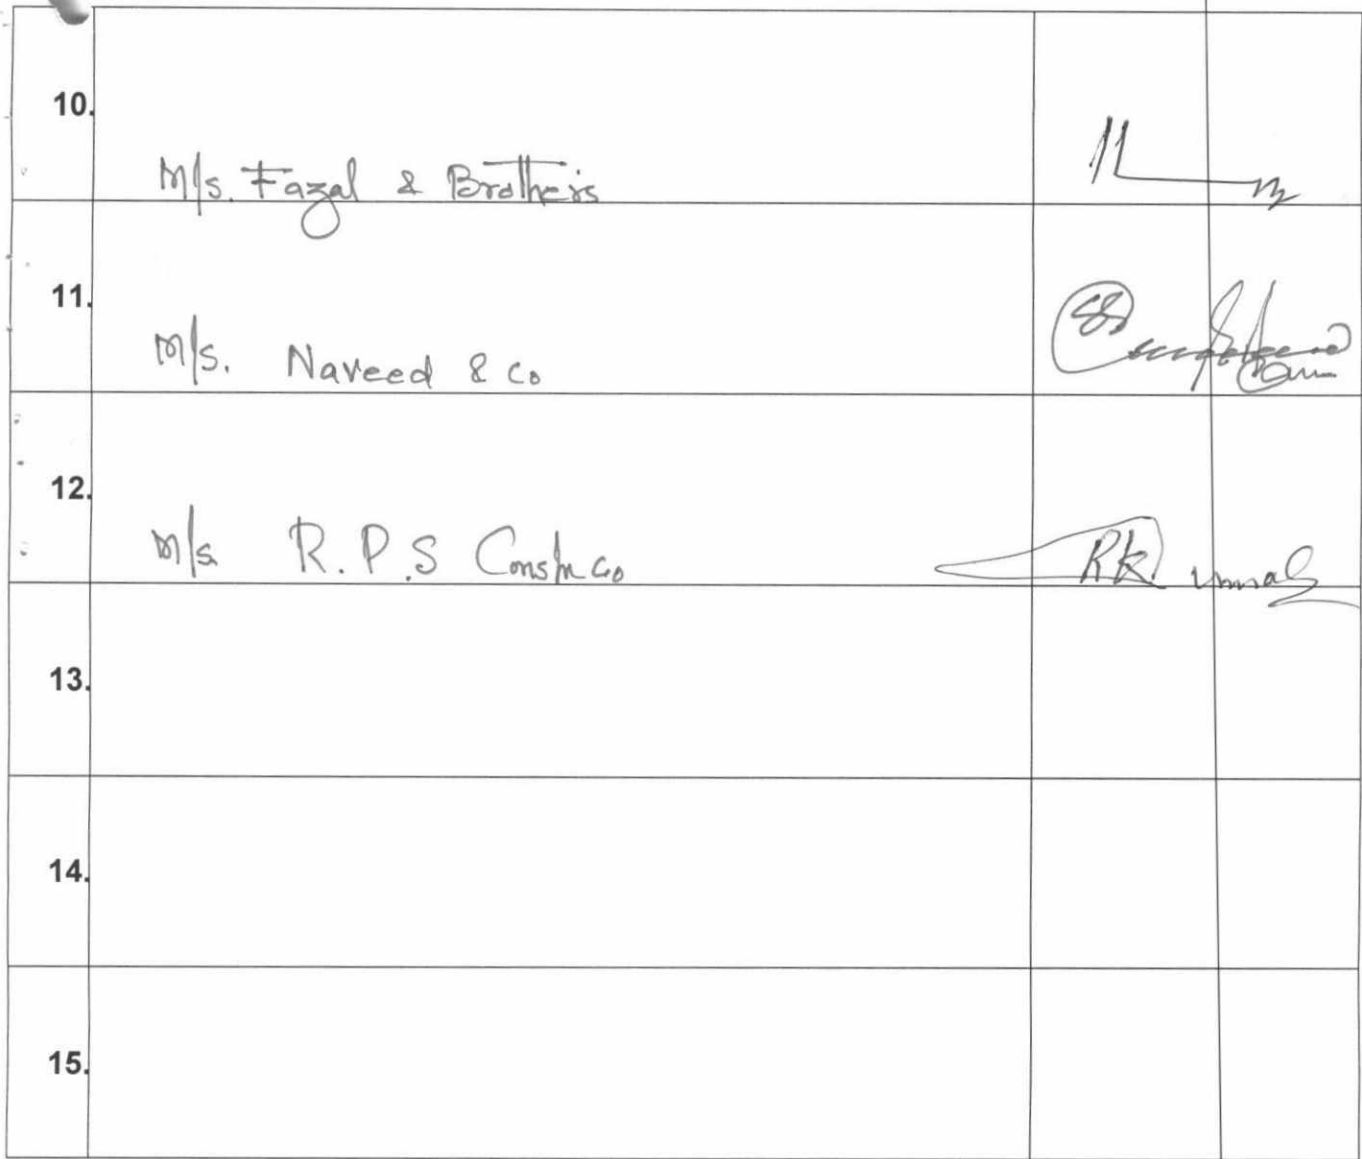 10.
M/s. Fazal & Brothers
11.
M/s. Naveed & Co
12.
M/s R.P.S Constn Co
13.
14.
15.